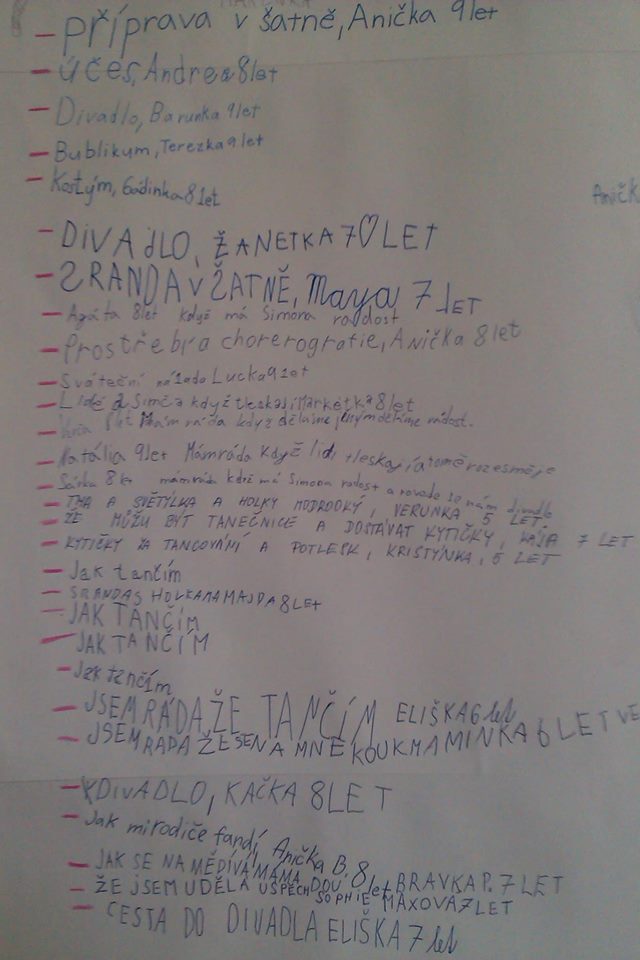 - příprava v šatně, Anička 9 let
- účes, Andrea 8 let
- Divadlo, Barunka 9 let
- Bublikum, Terezka 9 let
- Kostým, 8 let
Aničk
- DIVAdLO, ŽANETKA 7 LET
- SRANDA V ŽATNĚ, Maya 7 LET
- Agáta 8 let když má Simona radost
- Prostřebra chorerografie, Anička 8 let
- Sváteční nálada Lucka 9 let
- Lidé a Simča když tleskají Markétka 8 let
8 let Mám ráda když děláme, jiným děláme radost.
- Natálie 9 let Mám ráda když lidi tleskají a tomě rozesměje
- Sárka 8 let mám ráda kdiž má Simona radost a rovade se nám divadlo
- TMA A SVĚTÝLKA A HOLKY MODROOKÝ, VERUNKA 5 LET.
- ŽE MŮŽU BÝT TANEČNICE A DOSTÁVAT KYTIČKY, KÁJA 7 LET
- KYTIČKY ZA TANCOVÁNÍ A POTLESK, KRISTÝNKA, 5 LET
- Jak tančím
- SRANDA S HOLKAMA MAJDA 8 LET
- JAK TANČÍM
- JAK TANČÍM
- Jak tančím
- JSEM RÁDA ŽE TANČÍM ELIŠKA 6 let
- JSEM RÁDA ŽE SE NA MNĚ KOUK MAMINKA 6 LET VE
- DiVADLO, KAČKA 8 LET
- Jak mi rodiče fandí, Anička B. 8 let
- JAK SE NA MĚ DÍVÁ MÁMA P. 7 LET
- ŽE JSEM UDĚLA ÚSPĚCH SOPHIE MAXOVA 7 LET
- CESTA DO DIVADLA ELIŠKA 7 let